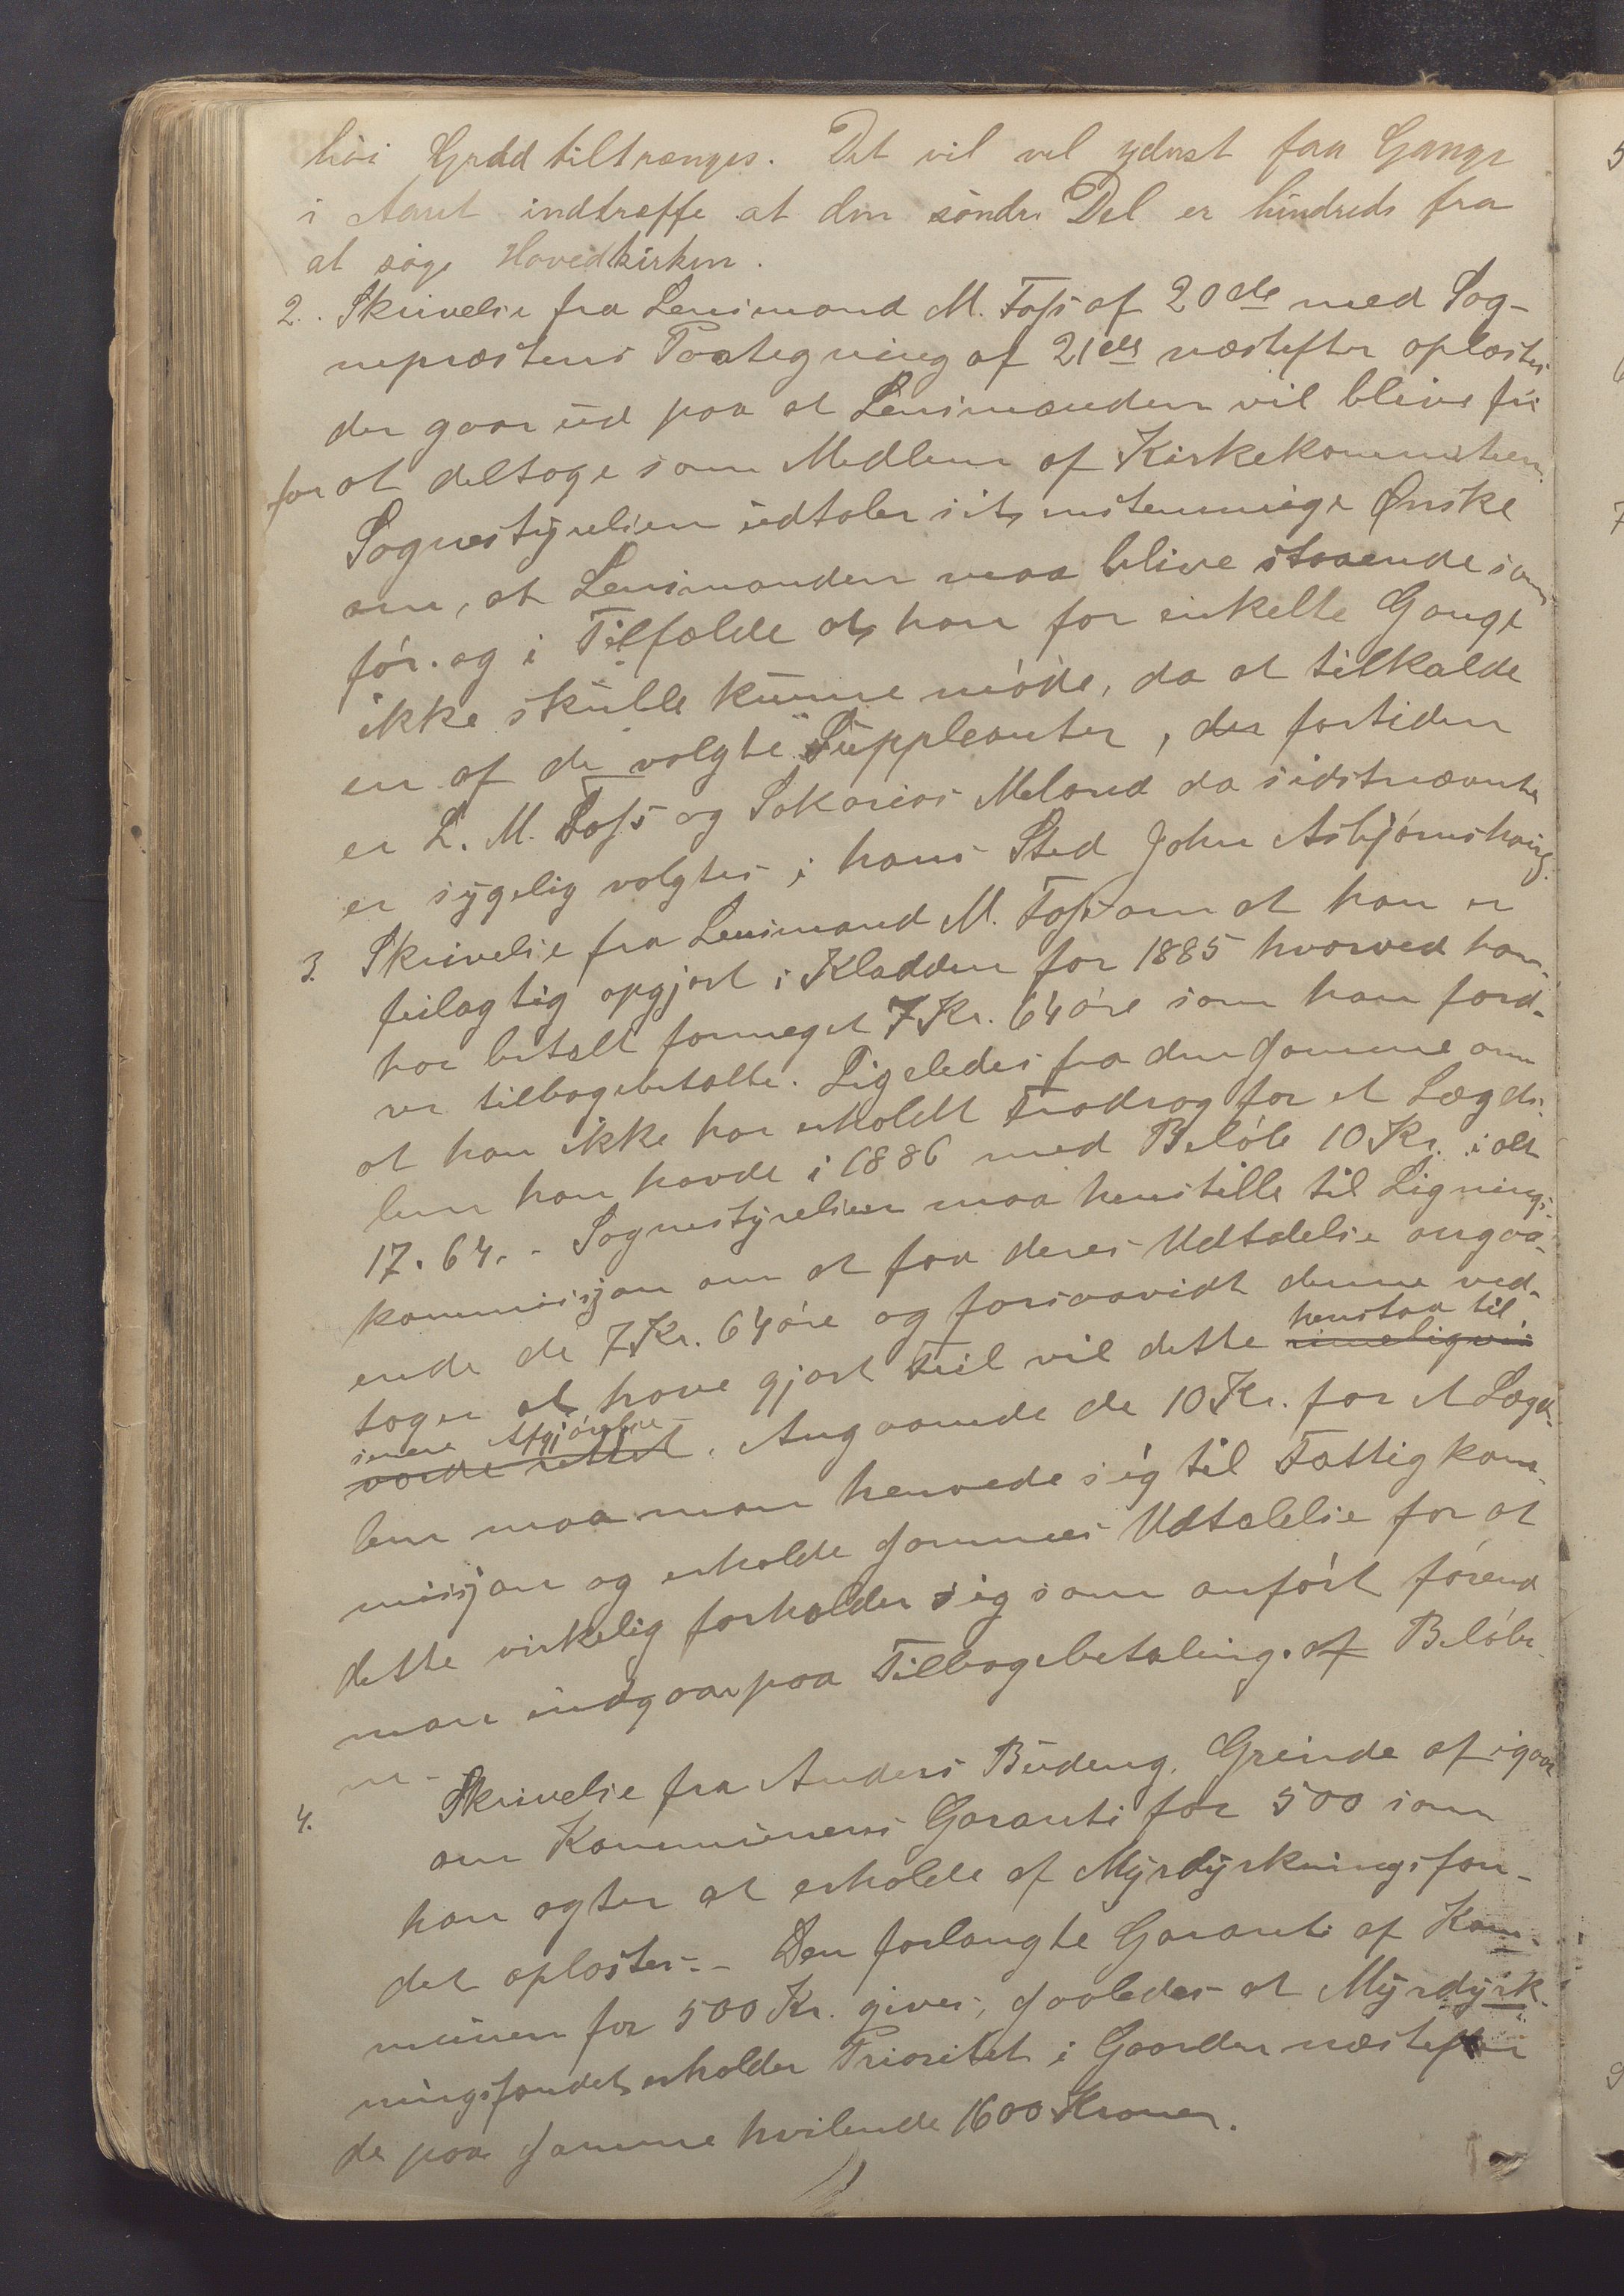 høi Grad tiltrænges. Det vil vel yderst faa Gange
i Aaret indtræffe at den søndre Del er hindrede fra
at søge Hovedkirken.
2. Skrivelse fra Lensmand M. Foss af 20de med Sog-
nepræstens Paategning af 21de næstefter oplæstes
der gaar ud paa at Lensmanden vil blive fri
for at deltage som Medlem af Kirkekommisteen.
Sognestyrelsen udtaler sit enstemmige Ønske
om, at Lensmanden maa blive staaende som
før. og i Tilfælde at han for enkelte Gange
ikke skulle kunne møde, da at tilkalde
en af de valgte Suppleanter, der fortiden
er L. M. Foss og Sakarias Meland da sidstnævnte
er sygelig valgtes i hans Sted John Asbjørnshaug.
3. Skrivelse fra Lensmand M. Foss om at han er
feilagtig opgjort i Kladden for 1885 hvorved han
har betalt formeget 7 Kr. 64 øre som han ford-
rer tilbagebetalte. Ligeledes fra den samme om
at han ikke har erholdt Fradrag for et Lægds-
lem han havde i 1886 med Beløb 10 Kr. i alt
17.64. - Sognestyrelsen maa henstille til Lignings-
kommissjon om at faa deres Udtalelse angaa-
ende de 7 Kr. 64 øre og forsaavidt denne ved-
tager at have gjort Feil vil dette rimeligvis henstaa til
vorde rettet senere Afgjørelse. Angaaende de 10 Kr. for et Lægds-
lem maa man henvede sig til Fattigkom-
missjon og erholde sammes Udtalelse for at
dette virkelig forholder sig som anført førend
man indgaar paa Tilbagebetaling. af Beløbe-
ne -
4. Skrivelse fra Anders Budeng. Greinde af igaar
om Kommunens Garanti for 500 som
han agter at erholde af Myrdyrkningsfon-
det oplæstes. - Den forlangte Garanti af Kom-
munen for 500 Kr. gives, saaledes at Myrdyrk-
ningsfondet erholder Prioritet i Gaarden næstefter
de paa samme hvilende 1600 Kroner.